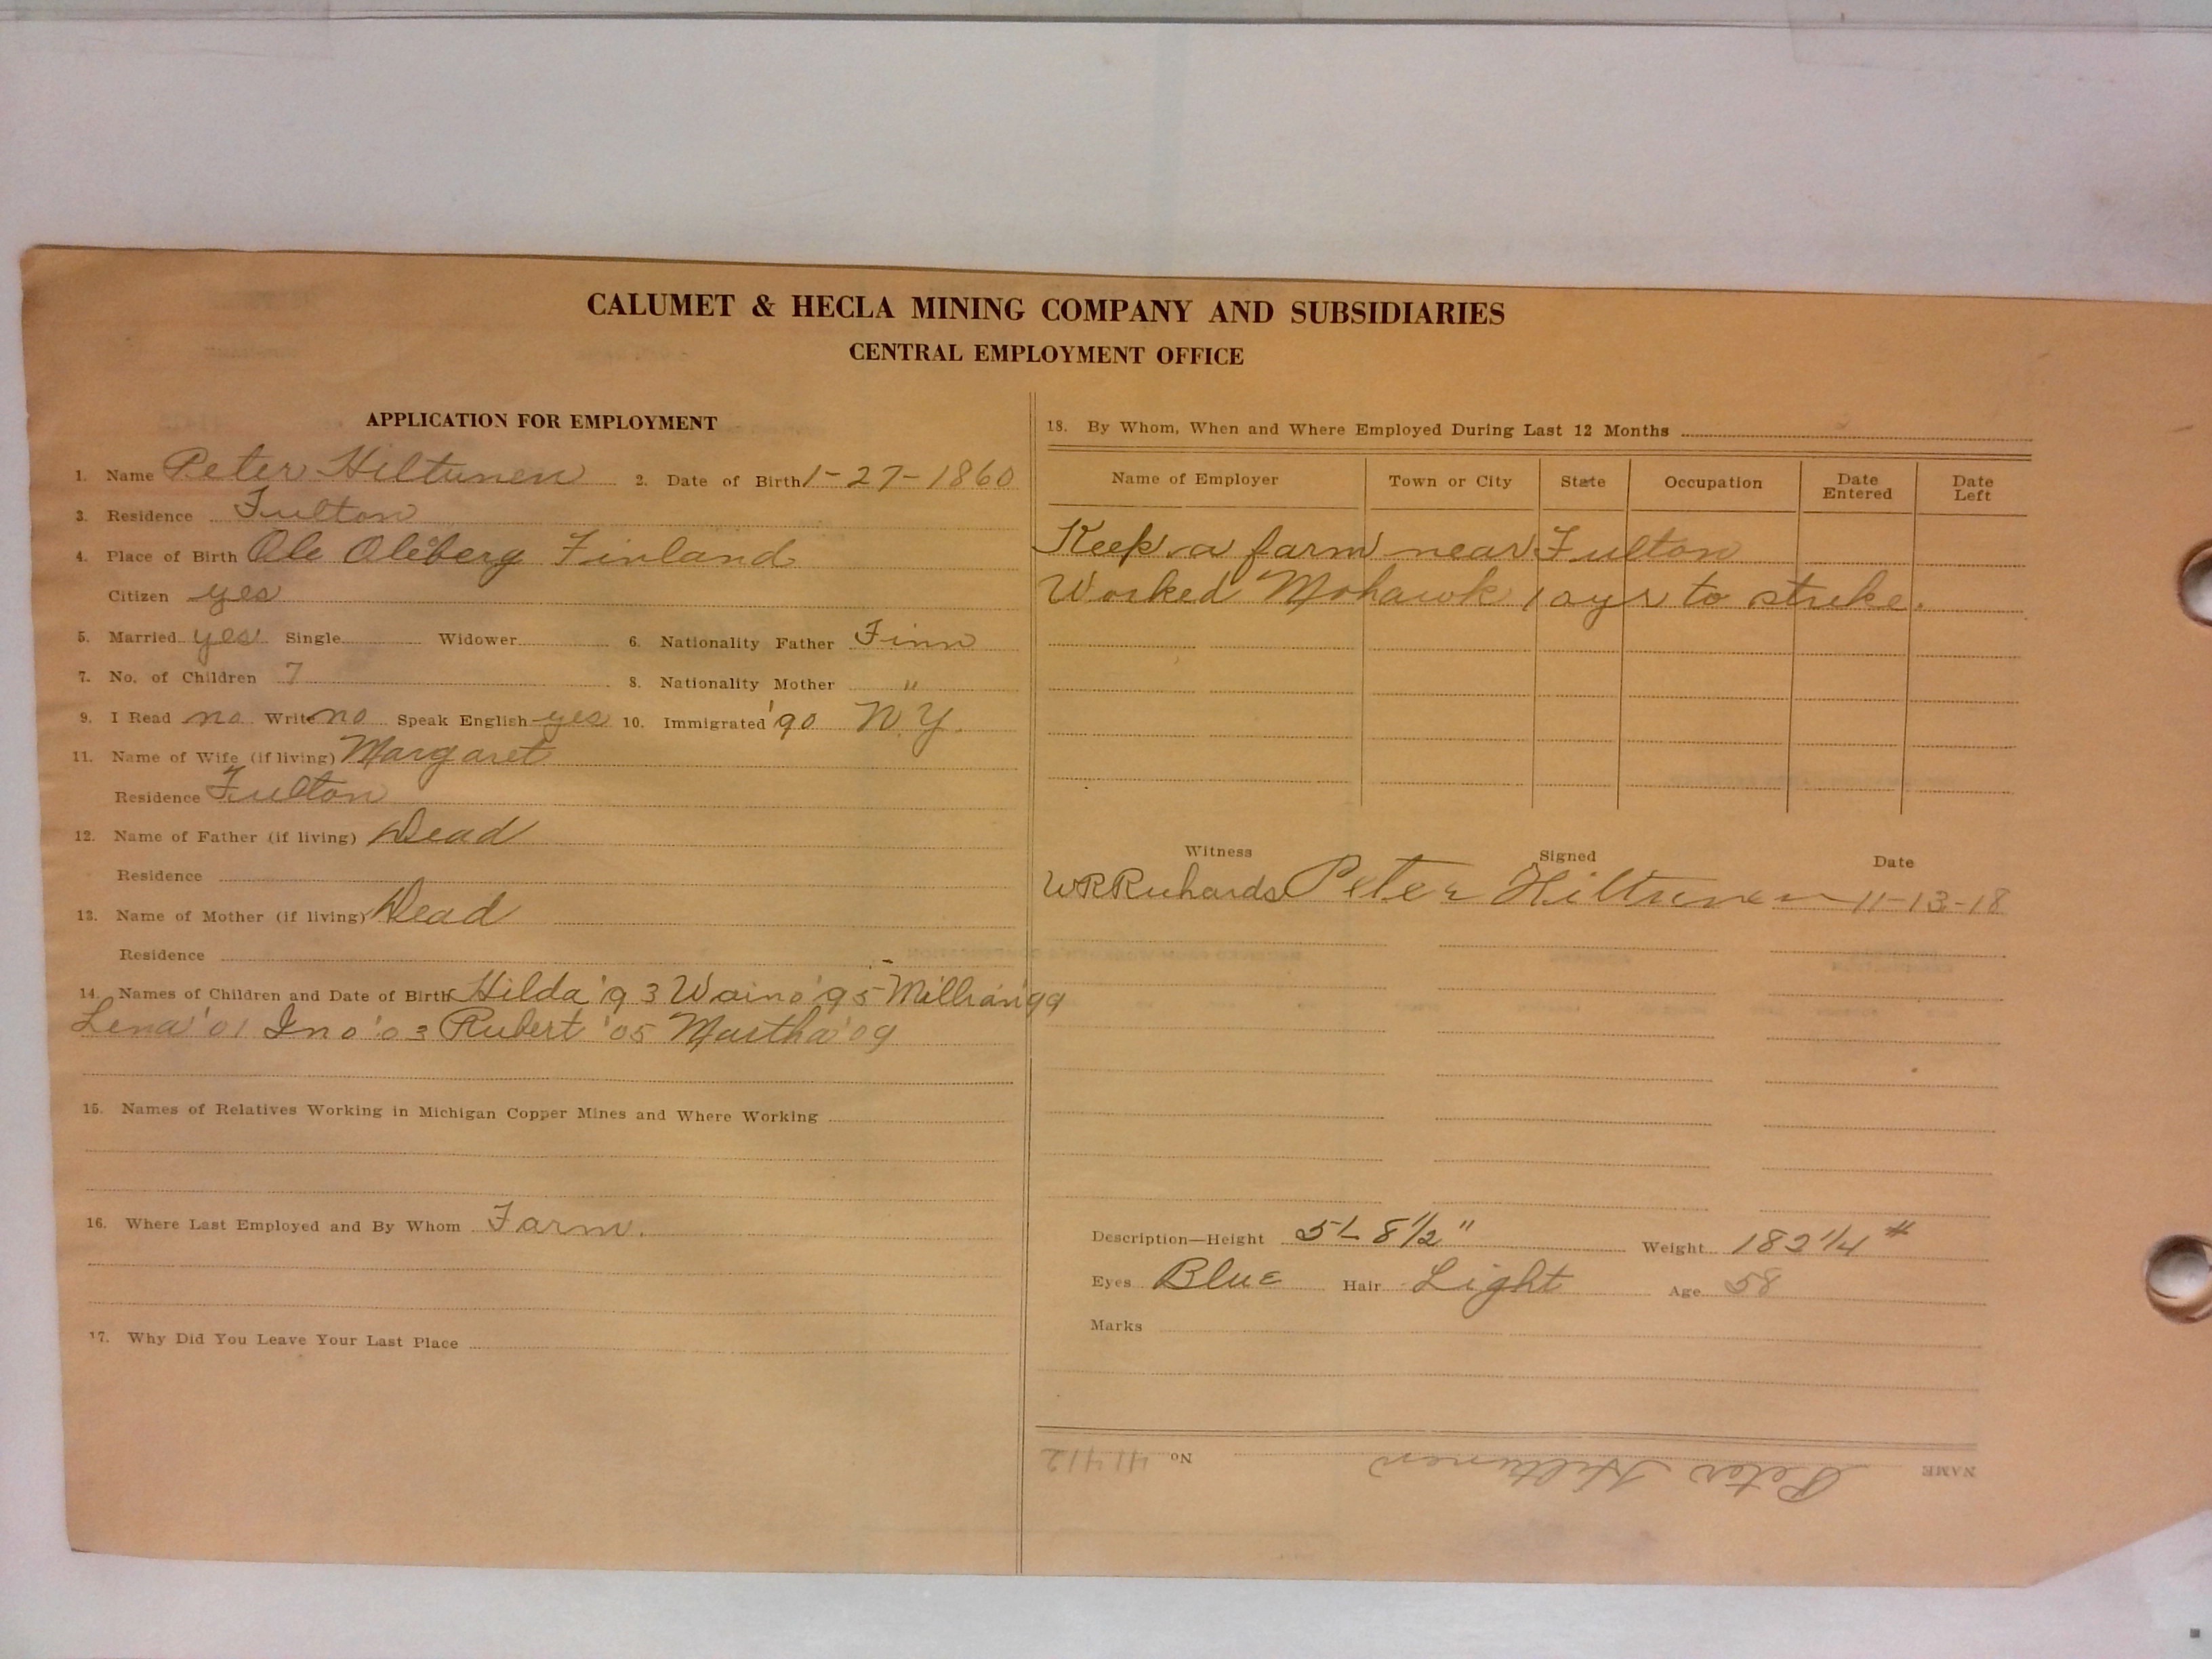 CALUMET & HECLA MINING COMPANY AND SUBSIDIARIES
CENTRAL EMPLOYMENT OFFICE
APPLICATION FOR EMPLOYMENT
1. Name Peter Hiltunen 2. Date of Birth 1-27-1860
3. Residence Fulton
4. Place of Birth Ole Oleberg Finland
Citizen yes
5. Married yes Single Widower 6. Nationality Father Finn
7. No. of Children 7 8. Nationality Mother "
9. I Read no Write no Speak English yes 10. Immigrated '90 N.Y.
11. Name of Wife (if living) Margaret
Residence Fulton
12. Name of Father (if living) Dead
Residence
13. Name of Mother (if living) Dead
Residence
14. Names of Children and Date of Birth Hilda '93 Waino '95 Millian '99
Lena '01 Ino '03 Rubert '05 Martha '09
15. Names of Relatives Working in Michigan Copper Mines and Where Working
16. Where Last Employed and By Whom Farm.
17. Why Did You Leave Your Last Place
18. By Whom, When and Where Employed During Last 12 Months
Name of Employer Town or City State Occupation Date Entered Date Left
Keep a farm near Fulton
Worked Mohawk to strike.
Witness Signed Date
WRRichards Peter Hiltunen 11-13-18
Description—Height 5'- 8 1/2" Weight 182 1/4 #
Eyes Blue Hair Light Age 58
Marks
NAME Peter Hiltunen No. 41412